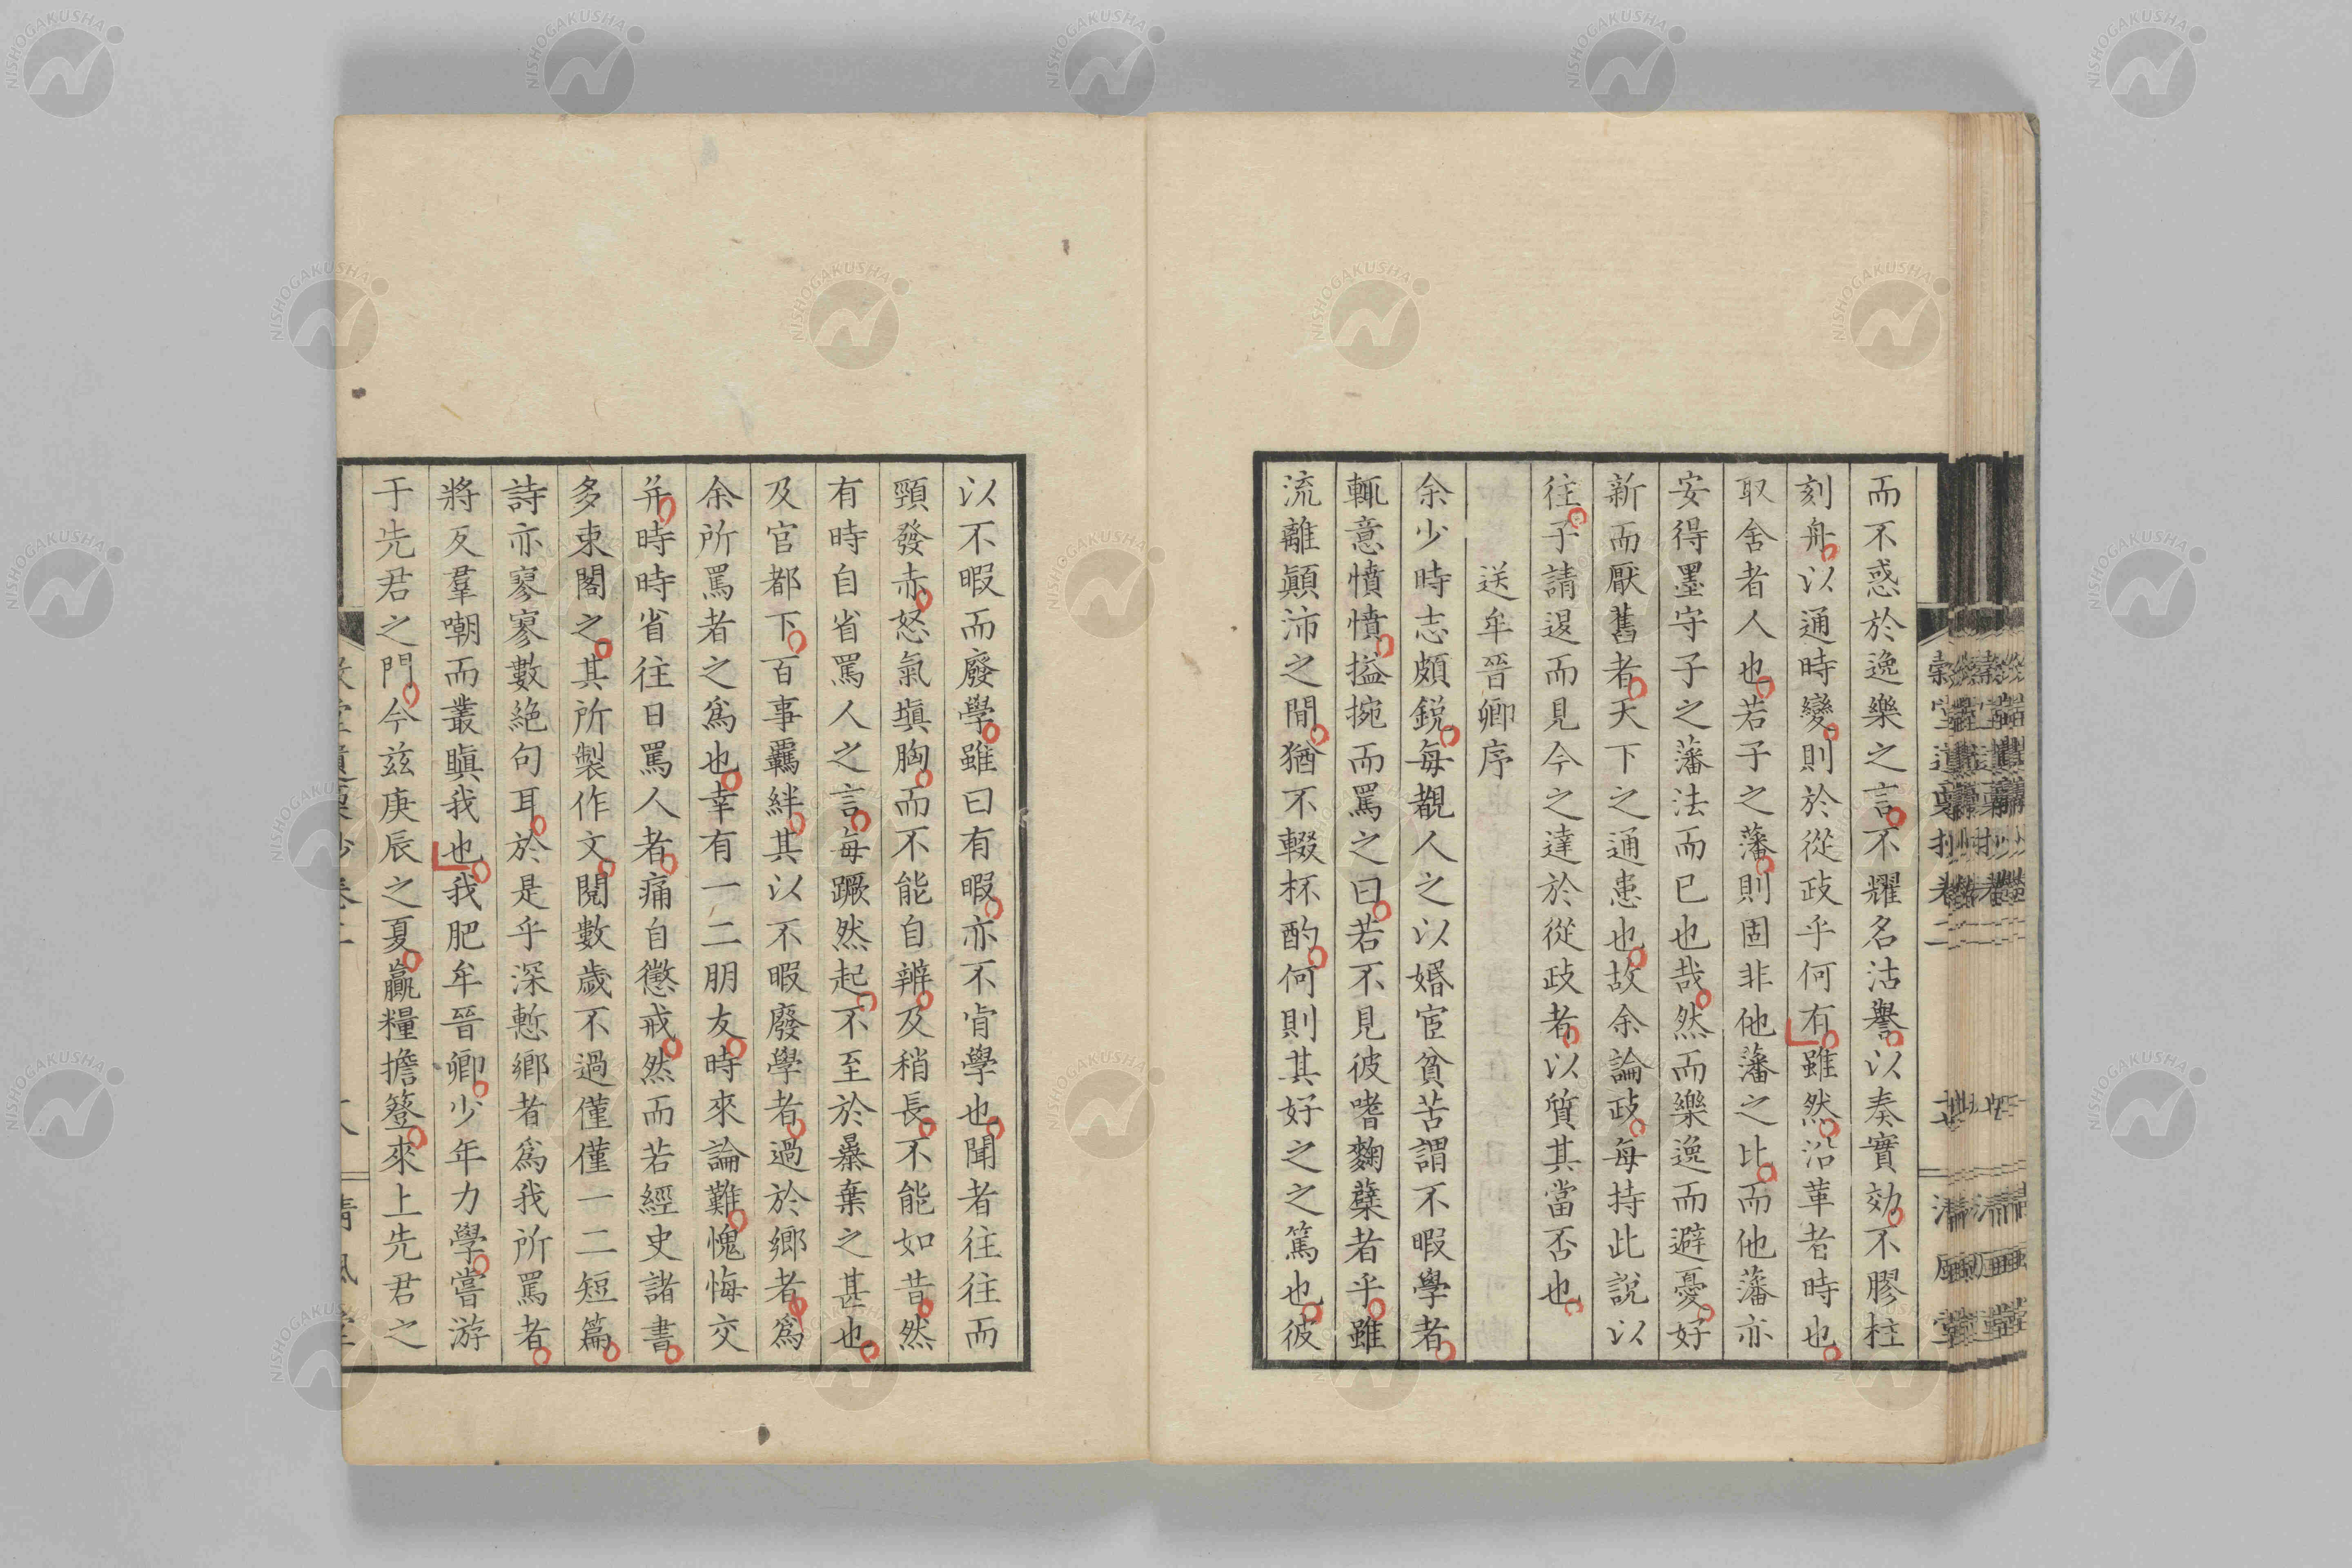 而不惑於逸樂之言不耀名沽譽以奏實効不膠柱
刻舟以通時變則於從政乎何有雖然沿革者時也
取舍者人也若子之藩則固非他藩之比而他藩亦
安得墨守子之藩法而已也哉然而樂逸而避憂好
新而厭舊者天下之通患也故余論政每持此說以
往子請退而見今之達於從政者以質其當否也
送牟晉卿序
余少時志頗銳每觀人之以婚宦貧苦謂不暇學者
輒意憤憤搤捥而罵之曰若不見彼嗜麴蘖者乎雖
流離顚沛之間猶不輟杯酌何則其好之之篤也彼
以不暇而廢學雖曰有暇亦不肯學也聞者往往而
頸發赤怒氣塡胸而不能自辨及稍長不能如昔然
有時自省罵人之言每蹶然起不至於暴棄之甚也
及官都下百事羈絆其以不暇廢學者過於鄉者爲
余所罵者之爲也幸有一二朋友時來論難愧悔交
并時時省往日罵人者痛自懲戒然而若經史諸書
多束閣之其所製作文閱數歲不過僅僅一二短篇
詩亦寥寥數絕句耳於是乎深慙鄉者爲我所罵者
將反羣嘲而叢瞋我也我肥牟晉卿少年力學嘗游
于先君之門今玆庚辰之夏贏糧擔簦來上先君之
NISHOGAKUSHA